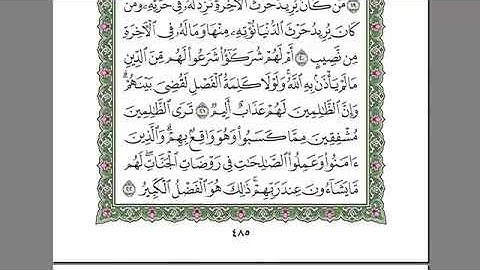 ١٩ مَن كَانَ يُرِيدُ حَرْثَ ٱلْأٓخِرَةِ نَزِدْ لَهُۥ فِى حَرْثِهِۦ وَمَن
كَانَ يُرِيدُ حَرْثَ ٱلدُّنْيَا نُؤْتِهِۦ مِنْهَا وَمَا لَهُۥ فِى ٱلْأٓخِرَةِ
مِن نَّصِيبٍ ٢٠ أَمْ لَهُمْ شُرَكَٰٓؤُا۟ شَرَعُوا۟ لَهُم مِّنَ ٱلدِّينِ
مَا لَمْ يَأْذَنۢ بِهِ ٱللَّهُ وَلَوْلَا كَلِمَةُ ٱلْفَصْلِ لَقُضِىَ بَيْنَهُمْ
وَإِنَّ ٱلظَّٰلِمِينَ لَهُمْ عَذَابٌ أَلِيمٌ ٢١ تَرَى ٱلظَّٰلِمِينَ
مُشْفِقِينَ مِمَّا كَسَبُوا۟ وَهُوَ وَاقِعٌۢ بِهِمْ وَٱلَّذِينَ
ءَامَنُوا۟ وَعَمِلُوا۟ ٱلصَّٰلِحَٰتِ فِى رَوْضَاتِ ٱلْجَنَّاتِ لَهُم
مَّا يَشَآءُونَ عِندَ رَبِّهِمْ ذَٰلِكَ هُوَ ٱلْفَضْلُ ٱلْكَبِيرُ ٢٢
٤٨٥